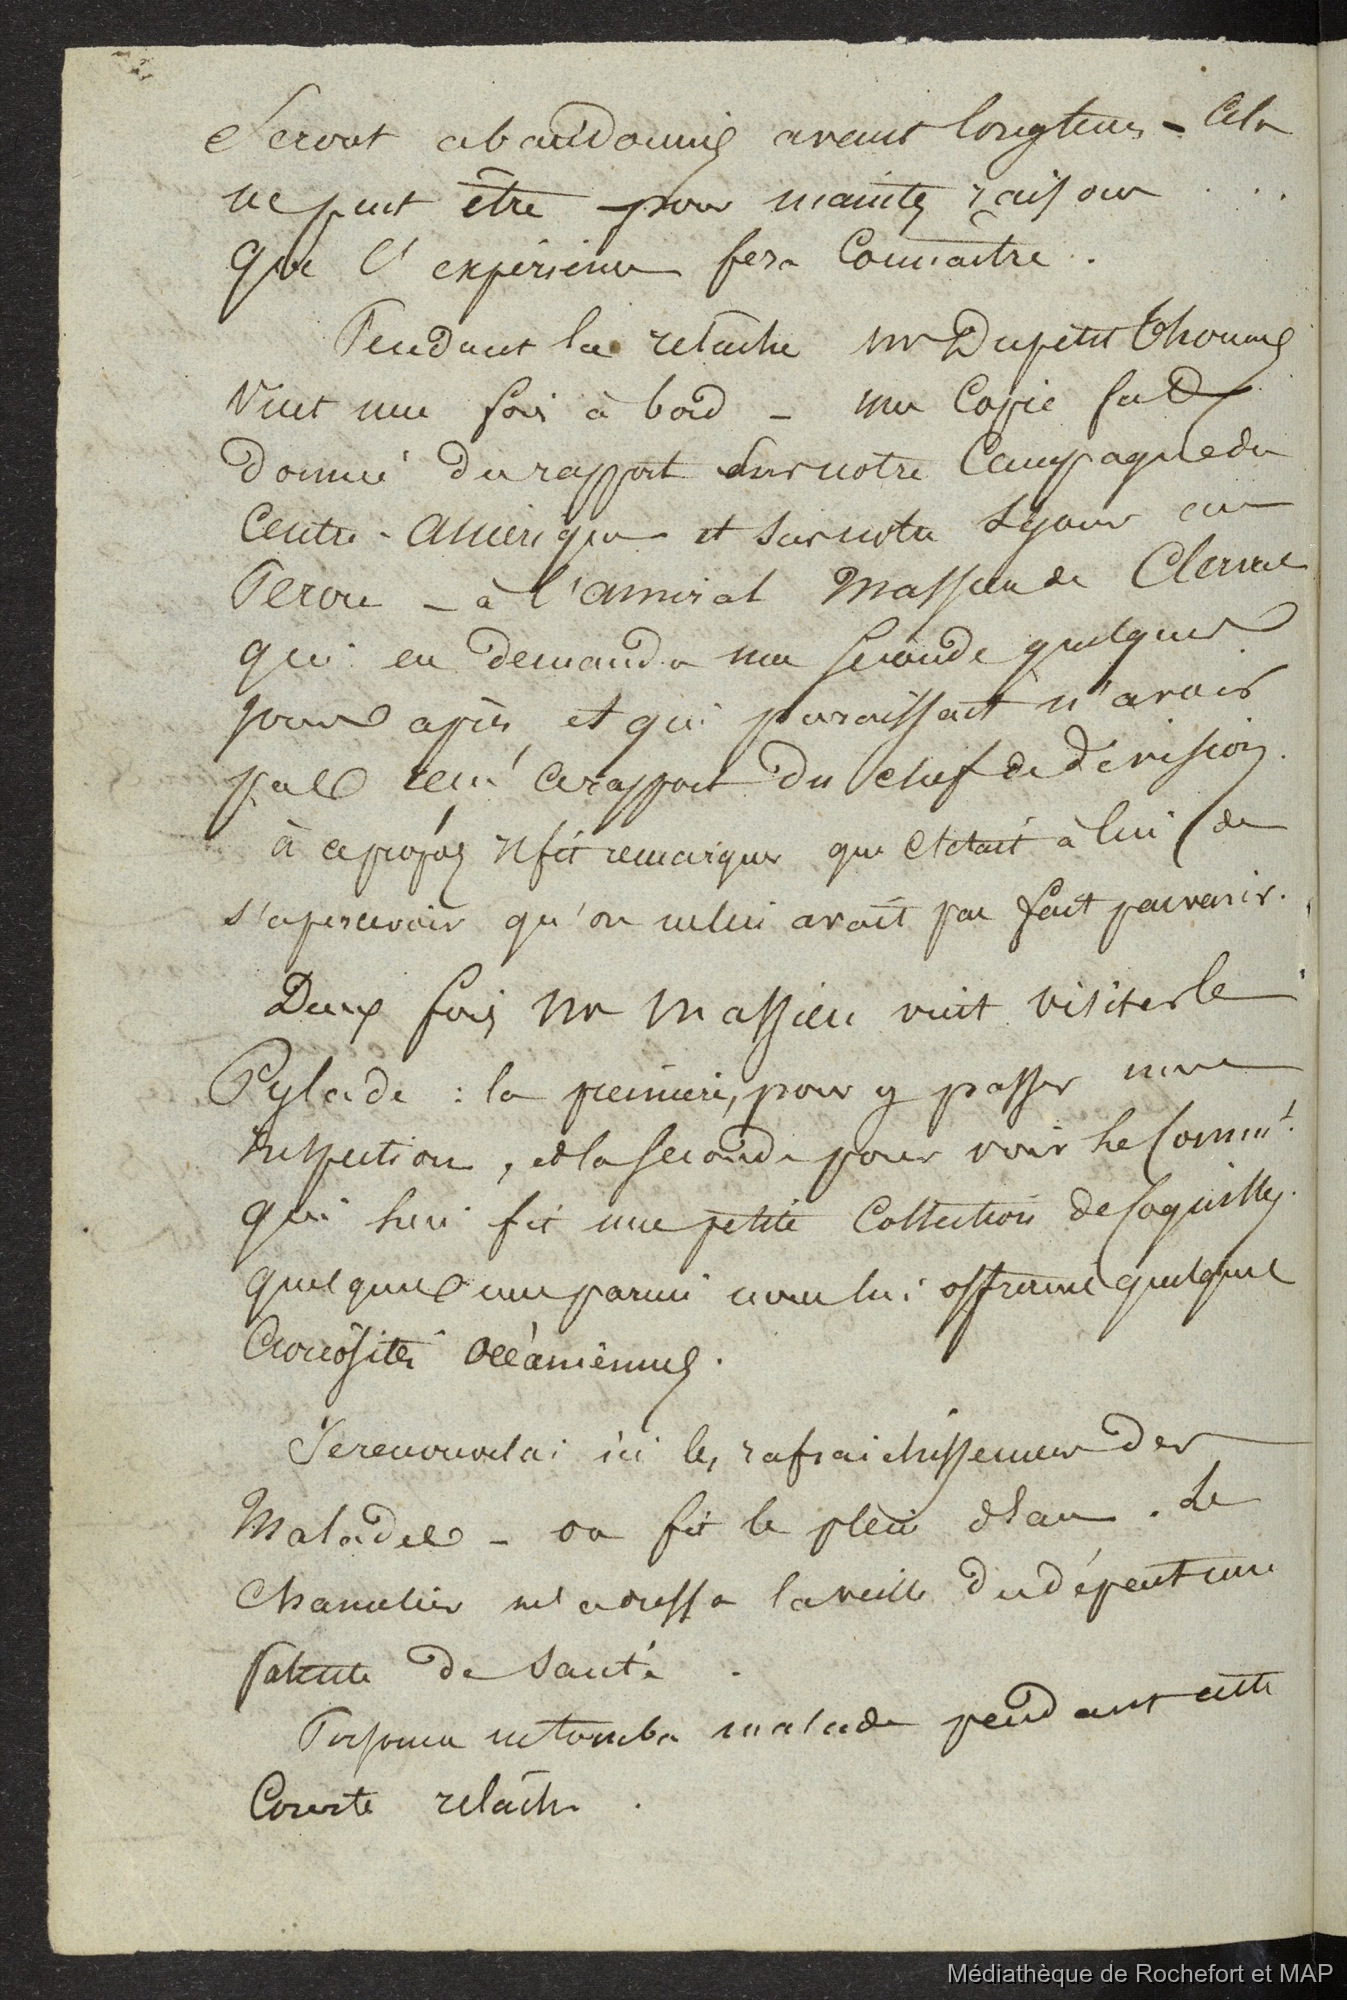 Seront abandonnés avant longtems - Cela
ne peut être pour maintes raisons . . .
Que l'expérience fera Connaître .
Pendant la relâche Mr Dupetit Thouars
vint une fois à bord - une Copie fut
donnée du rapport sur notre Campagne du
Centre-Amérique et sur notre séjour au
Pérou - à l'amiral Massieu de Clerval
qui en demanda une seconde quelques
jours après et qui paraissait n'avoir
pas reçu ce rapport du chef de division.
à ce propos il fit remarquer que c'était à lui de
s'apercevoir qu'on ne lui avait pas fait parvenir.
Deux fois Mr Massieu vint visiter le
Pylade : la première, pour y passer une
inspection, et la seconde pour voir le Commt.
qui lui fit une petite Collection de Coquilles.
quelques uns parmi nous lui offrirent quelques
Curiosités océaniennes.
Je renouvelai ici les rafraichissemens des
Malades - on fit le plein d'eau . Le
Chancelier m'adressa la veille du départ une
patente de santé .
Personne ne tomba malade pendant cette
Courte relâche .
Médiathèque de Rochefort et MAP